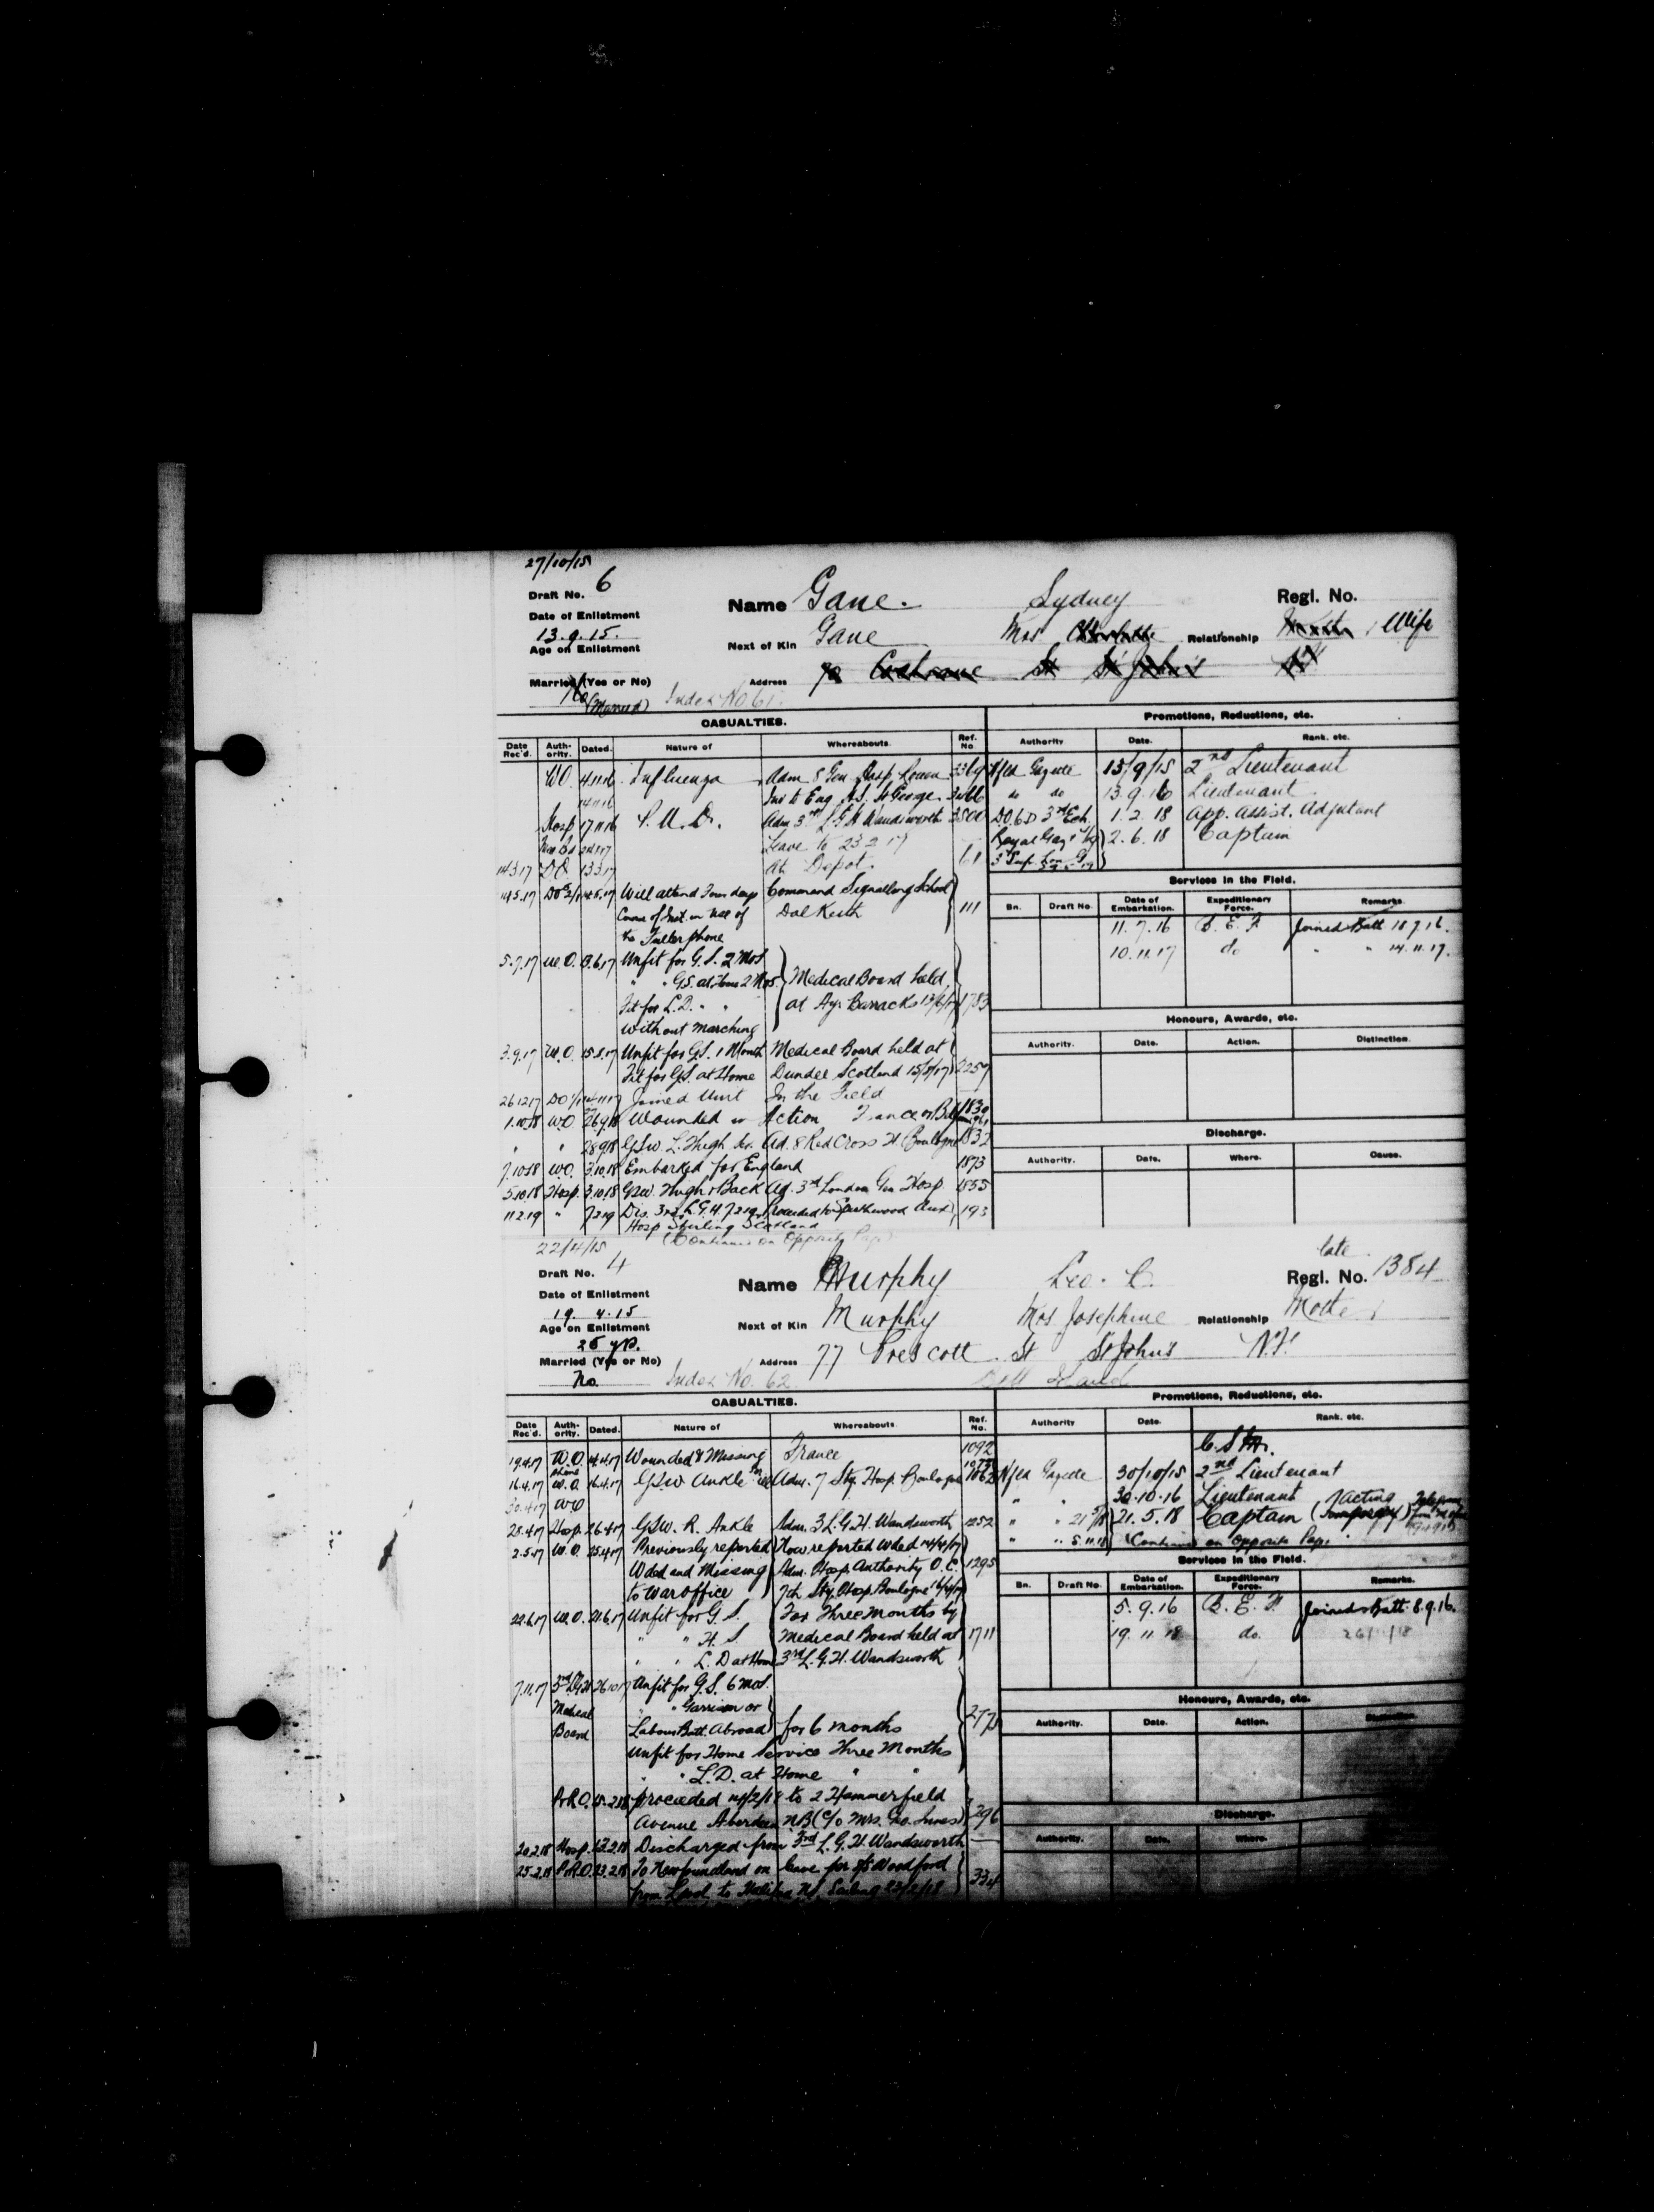 27/10/15
Draft No. 6
Name Gane. Sydney Regl. No.
Date of Enlistment
13.9.15.
Next of Kin Gane Mrs Relationship Wife
Age on Enlistment
Married (Yes or No) Address Cochrane St St John's
No (Married) Index No 61.
CASUALTIES. Promotions, Reductions, etc.
Date Rec'd. Auth-ority. Dated. Nature of Whereabouts. Ref. No. Authority Date. Rank, etc.
WO 4.11.16 Influenza Adm 8 Gen Hosp Rouen 3369 Nfld Gazette 13/9/15 2nd Lieutenant
14.11.16 Inv to Eng H.S. St George do do 13.9.16 Lieutenant
Hosp 17.11.16 P.U.O. Adm 3rd L.G.H Wandsworth 3500 DO.6D 3rd Ech. 1.2.18 App. Assist. Adjutant
Leave to 23 2 17 2.6.18 Captain
14317 DO 13317 At Depot. 61
Services in the Field.
14.5.17 14.5.17 Will attend Four days Command Signalling School
Course of Inst. in use of Dalkeith 111
the Fullerphone
Bn. Draft No. Date of Embarkation. Expeditionary Force. Remarks.
11.7.16 B.E.F. Joined Batt 18.7.16.
10.11.17 do " " 14.11.17.
5.7.17 W.O. Unfit for G.S. 2 Mos.
" " G.S. at Home 2 Mos. Medical Board held
Fit for L.D. " " at Ayr Barracks 13/6/17 1783
without marching
Honours, Awards, etc.
Authority. Date. Action. Distinction.
3.9.17 W.O. 15.8.17 Unfit for G.S. 1 Month Medical Board held at
Fit for G.S. at Home Dundee Scotland 15/8/17 2257
26.12.17 Joined Unit In the Field
1.10.18 WO Wounded in Action France or Bel
Discharge.
" " 28.9.18 GSW. L. Thigh Ad. 8 Red Cross H. Boulogne 1832
Authority. Date. Where. Cause.
7.10.18 W.O. 3.10.18 Embarked for England 1873
5.10.18 Hosp. 3.10.18 GSW. Thigh & Back Ad. 3rd London Gen Hosp. 1855
11.2.19 " 7219 Dis. 3rd L.G.H. 7.2.19 Proceeded to Southwood Aux 193
Hosp Stirling Scotland
(Continued on Opposite Page)
22/4/15
Draft No. 4
Name Murphy Leo. C. late Regl. No. 1384
Date of Enlistment
19.4.15
Next of Kin Murphy Mrs Josephine Relationship Mother
Age on Enlistment
26 yrs.
Married (Yes or No) Address 77 Prescott St St John's N.F.
No. Index No. 62 Bell Island
CASUALTIES. Promotions, Reductions, etc.
Date Rec'd. Auth-ority. Dated. Nature of Whereabouts. Ref. No. Authority Date. Rank, etc.
19.4.17 W.O. 14.4.17 Wounded & Missing France 1092
16.4.17 W.O. 16.4.17 GSW Ankle Adm. 7 Sty. Hosp. Boulogne 1062 Nfld Gazette 30/10/15 2nd Lieutenant
30.4.17 WO " " 30.10.16 Lieutenant
28.4.17 Hosp. 26.4.17 GSW. R. Ankle Adm. 3 L.G.H. Wandsworth 1252 " " 21.5.18 Captain (Temporary) Acting
2.5.17 W.O. 25.4.17 Previously reported Now reported wded 14/4/17 " " 5.11.18 (Continued on Opposite Page.
Wded and Missing Adm. Hosp. Authority O.C. 1295
to War Office 7th Sty. Hosp. Boulogne 16/4/17
Services in the Field.
Bn. Draft No. Date of Embarkation. Expeditionary Force. Remarks.
22.6.17 W.O. 21.6.17 Unfit for G.S. For Three Months by 5.9.16 B.E.F. Joined Batt. 8.9.16.
" " H.S. Medical Board held at 1711 19.11.18 do.
" " L.D at Home 3rd L.G.H. Wandsworth
7.11.17 3rd LGH 26.10.17 Unfit for G.S. 6 Mos.
Medical " " Garrison or
Board Labour Batt. Abroad for 6 months
Unfit for Home Service Three Months
" " L.D. at Home " "
Honours, Awards, etc.
Authority. Date. Action.
P.&R.O. 15.2.18 proceeded 14/2/18 to 2 Hammerfield
Avenue Aberdeen N.B (c/o Mrs. Geo. Innes) 296
Discharge.
Authority. Date. Where.
20.2.18 Hosp. 13.2.18 Discharged from 3rd L.G.H. Wandsworth
25.2.18 P.&R.O. 23.2.18 To Newfoundland on leave per S/S Woodford 334
from Lpool. to Halifax N.S. Sailing 23/2/18